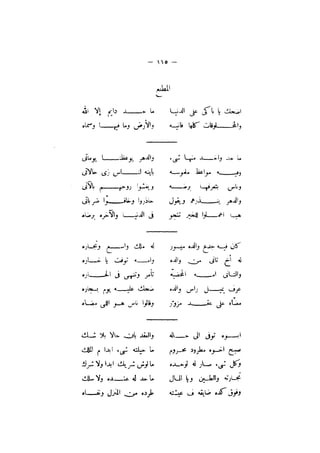 — ١١٥ —
المطلع
اضحك يا باكي على الدنيا ما حد دايم إلا الله
والمخلوقات كلها فانيه والأرض وما فيها وسماه
ما حد منها واخد شيء والدهر يوعظنا يومآتي
وفيه مواعظ مفيوسه بآيه لناس ذى حالآتي
وناس بتعرفها برضه ويمشوا روحهم بالآتي
والدهر ينذرهم ويقول حذروا وخافوا ضرباتي
هيا اعملوا للخير تنجو في الدنيا والآخره برضاه
كان فيه جدع والده ميسور له ملك واسع وتجاره
له أخ تاني من والده وامه توفت يا خساره
والتاني امه الخصيه تأمر وتنهى في الحاره
عرف يميل راس والده ضحك عليه يوم بجاره
مضاه على عقد مزور وقالوا ناس هو اللي مضاه
ابوه توفى إلى الله والعقد بان حالا بلا شك
صبح اخوه مطرود محروم ما حيلته شيء ابدا م الملك
وكل شيء صار له لوحده ما لوش شريك ابدا ولا شرك
تجارته والطين ويا المال ما حد له عنده ولا سلك
وفوق ده كله ضايقه ف عيشته طرده من المنزل ونفاه